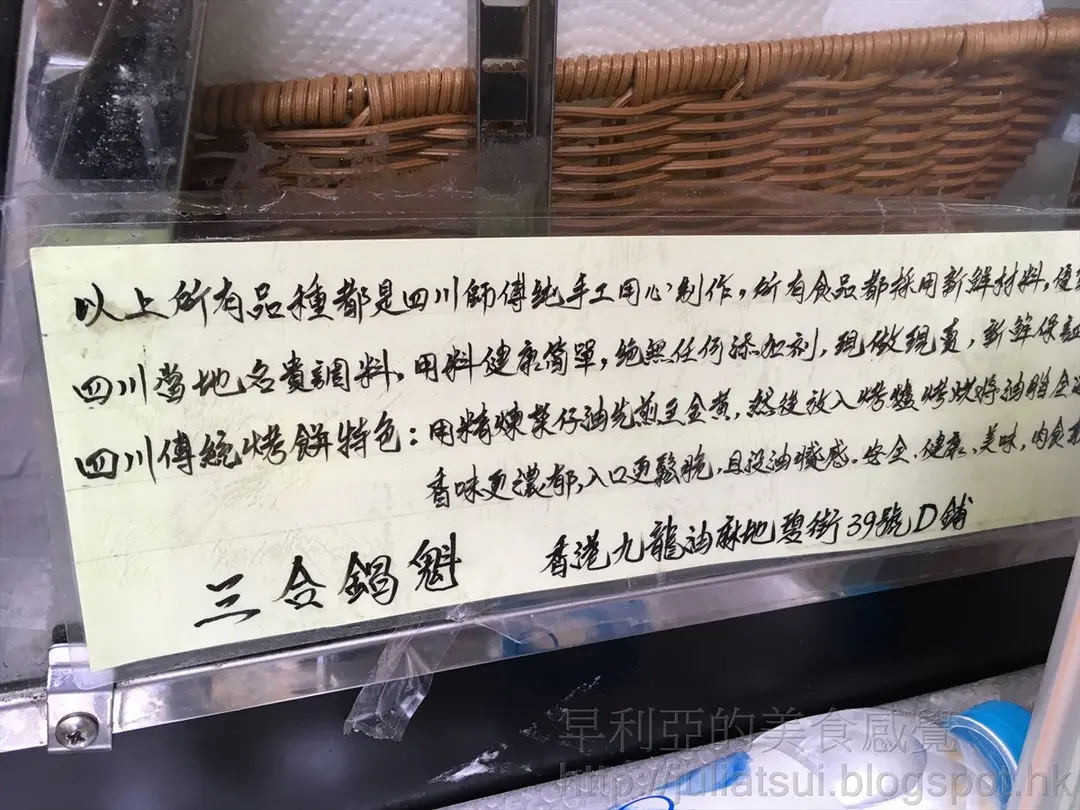 以上所有品種都是四川師傅純手工用心制作，所有食品都採用新鮮材料，
四川當地名貴調料，用料健康簡單，絕無任何添加剂，現做現賣，新鮮保證
四川傳統烤餅特色：用精煉菜仔油先煎至金黃，然後放入烤爐烤烘將油脂全
香味更濃郁，入口更鬆脆，且沒油膩感。安全、健康、美味，肉食
三合鍋魁 香港九龍油麻地碧街39號D鋪
早利亞的美食感覺
http://juliatsui.blogspot.hk